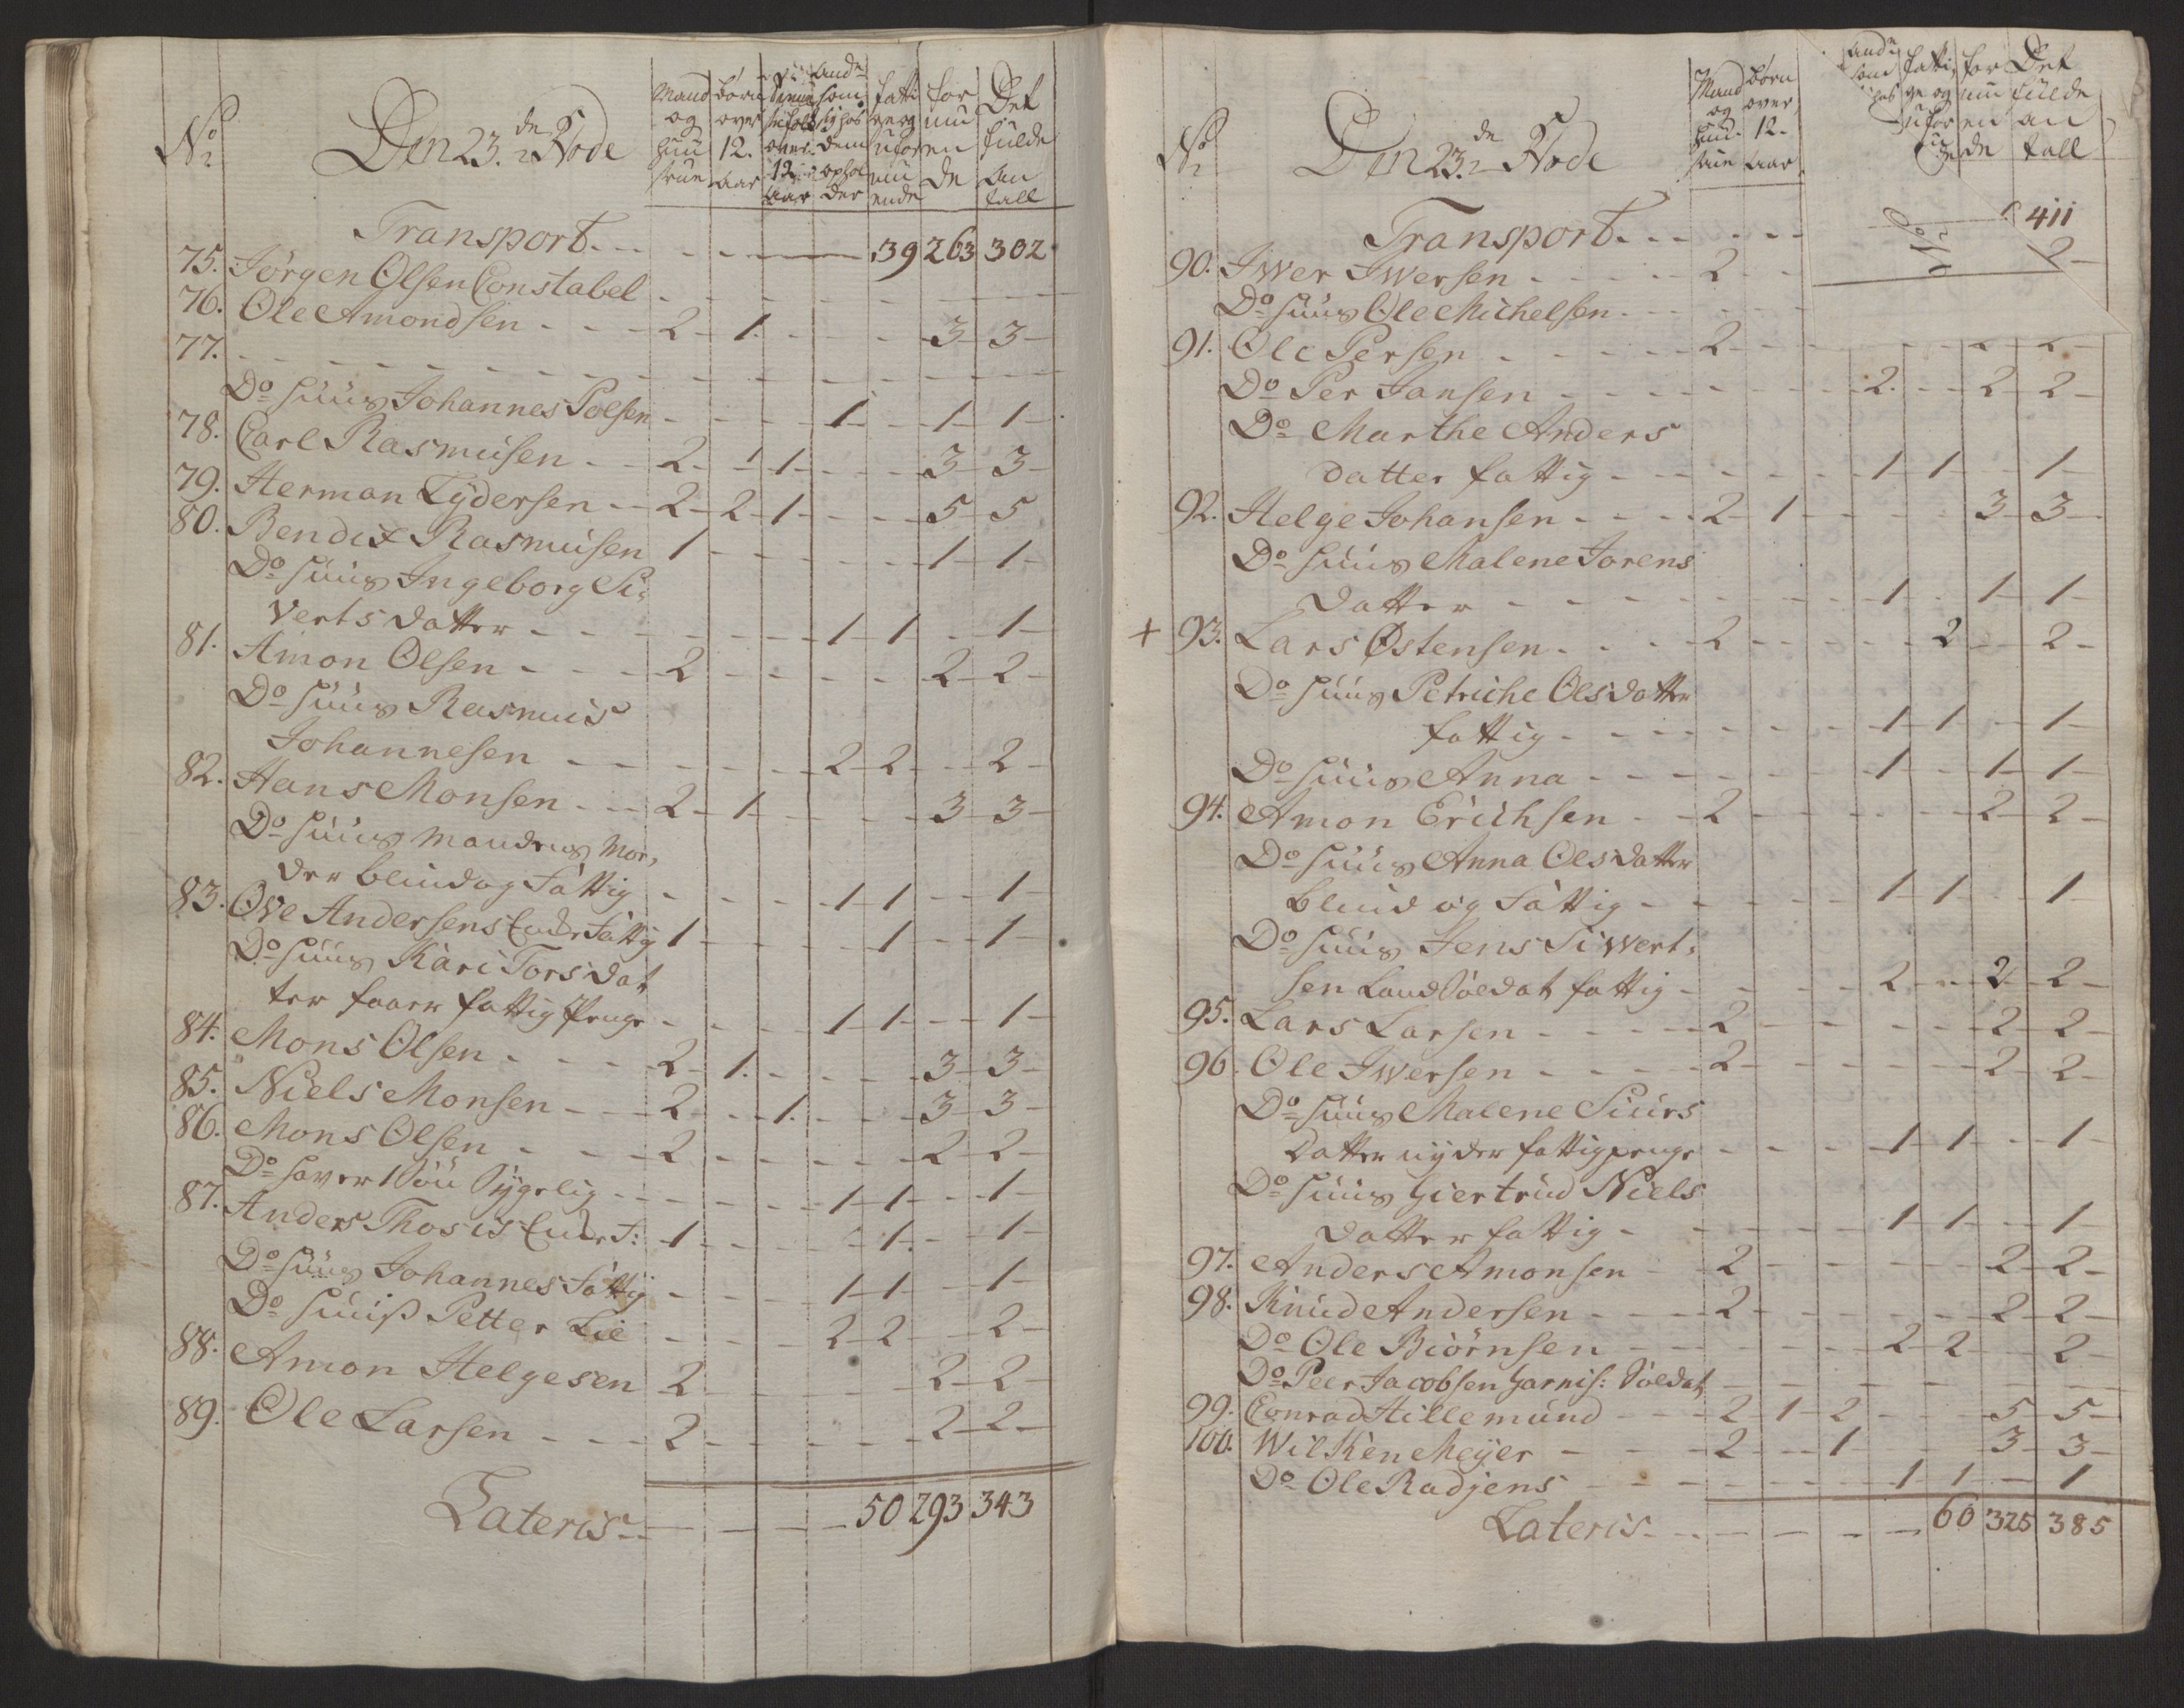 No Den 23.de Rode
Mand og huu strue
børn over 12. aar
over 12 aar
Ande som sig hos dem ophol der
fatti ge og ufor mu ende
for mu en de
Det fulde an tall
Transport - - - 39 263 302
75. Jørgen Olsen Constabel - - - - - - -
76. Ole Amondsen - - - 2 - 1 - - - 3 - 3 -
77. - - - - - - - - -
Do huus Johannes Polsen - - - 1 - 1 - 1 -
78. Carl Rasmusen - - 2 - 1 - 1 - - - 3 - 3 -
79. Herman Lydersen - - 2 - 2 - 1 - - - 5 - 5
80. Bendix Rasmusen 1 - - - - - 1 - 1 -
Do huus Ingeborg Si:
vertsdatter - - - - - - 1 - 1 - - 1 -
81. Amon Olsen - - - 2 - - - - 2 - 2 -
Do huus Rasmus
Johannesen - - - - - - 2 - 2 - - 2 -
82. Hans Monsen - - 2 - 1 - - - 3 - 3 -
Do huus Mandens Mo-
der blind og Fattig - - - 1 - 1 - - 1 -
83. Ove Andersens Enke Fattig 1 - - - - 1 - - 1 -
Do huus Kari Torsdat
ter faaer fattig Penge - - - 1 - 1 - - 1 -
84. Mons Olsen - - - 2 - 1 - - - 3 - 3 -
85. Niels Monsen - - - 2 - - 1 - - - 3 - 3 -
86. Mons Olsen - - - 2 - - - - - 2 - 2 -
Do haver 1 Søn Sygelig - - - - 1 - 1 - - 1 -
87. Anders Thosis Enke F: 1 - - - - 1 - - 1 -
Do huus Johannes Fattig - - - 1 - 1 - - 1 -
Do huus Petter Lie - - - 2 - 2 - - 2 -
88. Amon Helgesen 2 - - - - - 2 - 2 -
89. Ole Larsen - - - 2 - - - - - 2 - 2 -
Lateris - - - - 50 293 343
No Den 23.de Rode
Mand og huu strue
børn over 12. aar
Ande som hos
fatti ge og ufor
for mu en de
Det fulde an tall
411
No 2 -
Transport - - - - -
90. Iwer Iwersen - - - - 2 - -
Do huus Ole Michelsen - - - -
91. Ole Persen - - - - 2 - - - - - 2 - 2 -
Do Per Jansen - - - - - - 2 - - 2 - 2 -
Do Marthe Anders
datter fattig - - - - - - 1 - 1 - - 1 -
92. Helge Johansen - - - 2 - 1 - - - - 3 - 3 -
Do huus Malene Jorens
datter - - - - - - - 1 - - 1 - 1 -
+ 93. Lars Østensen - - - 2 - - - - 2 - - 2 -
Do huus Petriche Olsdatter
fattig - - - - - - 1 - 1 - - 1 -
Do huus Anna - - - - - - 1 - - 1 - 1 -
94. Amon Erichsen - - 2 - - - - - 2 - 2 -
Do huus Anna Olsdatter
blind og Fattig - - - - - 1 - 1 - - 1 -
Do huus Jens Siwert:
sen Land Soldat fattig - - - - 2 - - 2 - 2 -
95. Lars Larsen - - - - 2 - - - - - 2 - 2 -
96. Ole Iwersen - - - - 2 - - - - - 2 - 2 -
Do huus Malene Siurs
datter nyder fattig penge - - - - 1 - 1 - - 1 -
Do huus Giertrud Niels
datter fattig - - - - - 1 - 1 - - 1 -
97. Anders Amonsen - 2 - - - - - 2 - 2 -
98. Knud Andersen - - - 2 - - - - - 2 - 2 -
Do Ole Biørnsen - - - - - - 2 - 2 - 2 -
Do Peer Jacobsen Garnis: Soldat - - - - - - -
99. Conrad Hillemund - - - 2 - 1 - 2 - - - 5 - 5 -
100. Wilken Meyer - - - 2 - - 1 - 3 - 3 -
Do Ole Radjens - - - - - - 1 - 1 - - 1
Lateris - - - - - - 60 325 385